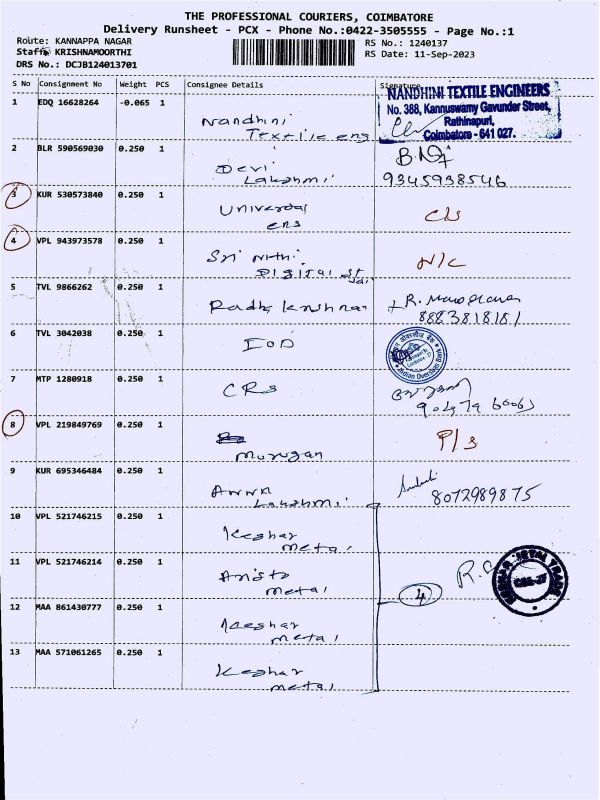 THE PROFESSIONAL COURIERS, COIMBATORE
Delivery Runsheet - PCX - Phone No.:0422-3505555 - Page No.:1
Route: KANNAPPA NAGAR
RS No.: 1240137
Staff: KRISHNAMOORTHI
RS Date: 11-Sep-2023
DRS No.: DCJB124013701
S No Consignment No Weight PCS Consignee Details Signature
1 EDQ 16628264 -0.065 1 Nandhini
Textile eng
NANDHINI TEXTILE ENGINEERS
No. 388, Kannuswamy Gavunder Street,
Rathinapuri,
Coimbatore - 641 027.
2 BLR 590569030 0.250 1 Devi
Lakshmi
9345938546
3 KUR 530573840 0.250 1 Universal
ens
C/s
4 VPL 943973578 0.250 1 Sri Nithi
Digital
N/C
5 TVL 9866262 0.250 1 Radha Krishnan
8883818181
6 TVL 3042038 0.250 1 IOD
Indian Overseas Bank
7 MTP 1280918 0.250 1 CRS
8 VPL 219849769 0.250 1 Murugan
P/s
9 KUR 695346484 0.250 1 Anna
Lakshmi
8072989875
10 VPL 521746215 0.250 1 Keshar
metal
11 VPL 521746214 0.250 1 Aristo
metal
4
12 MAA 861430777 0.250 1 Keshar
metal
13 MAA 571061265 0.250 1 Keshar
metal